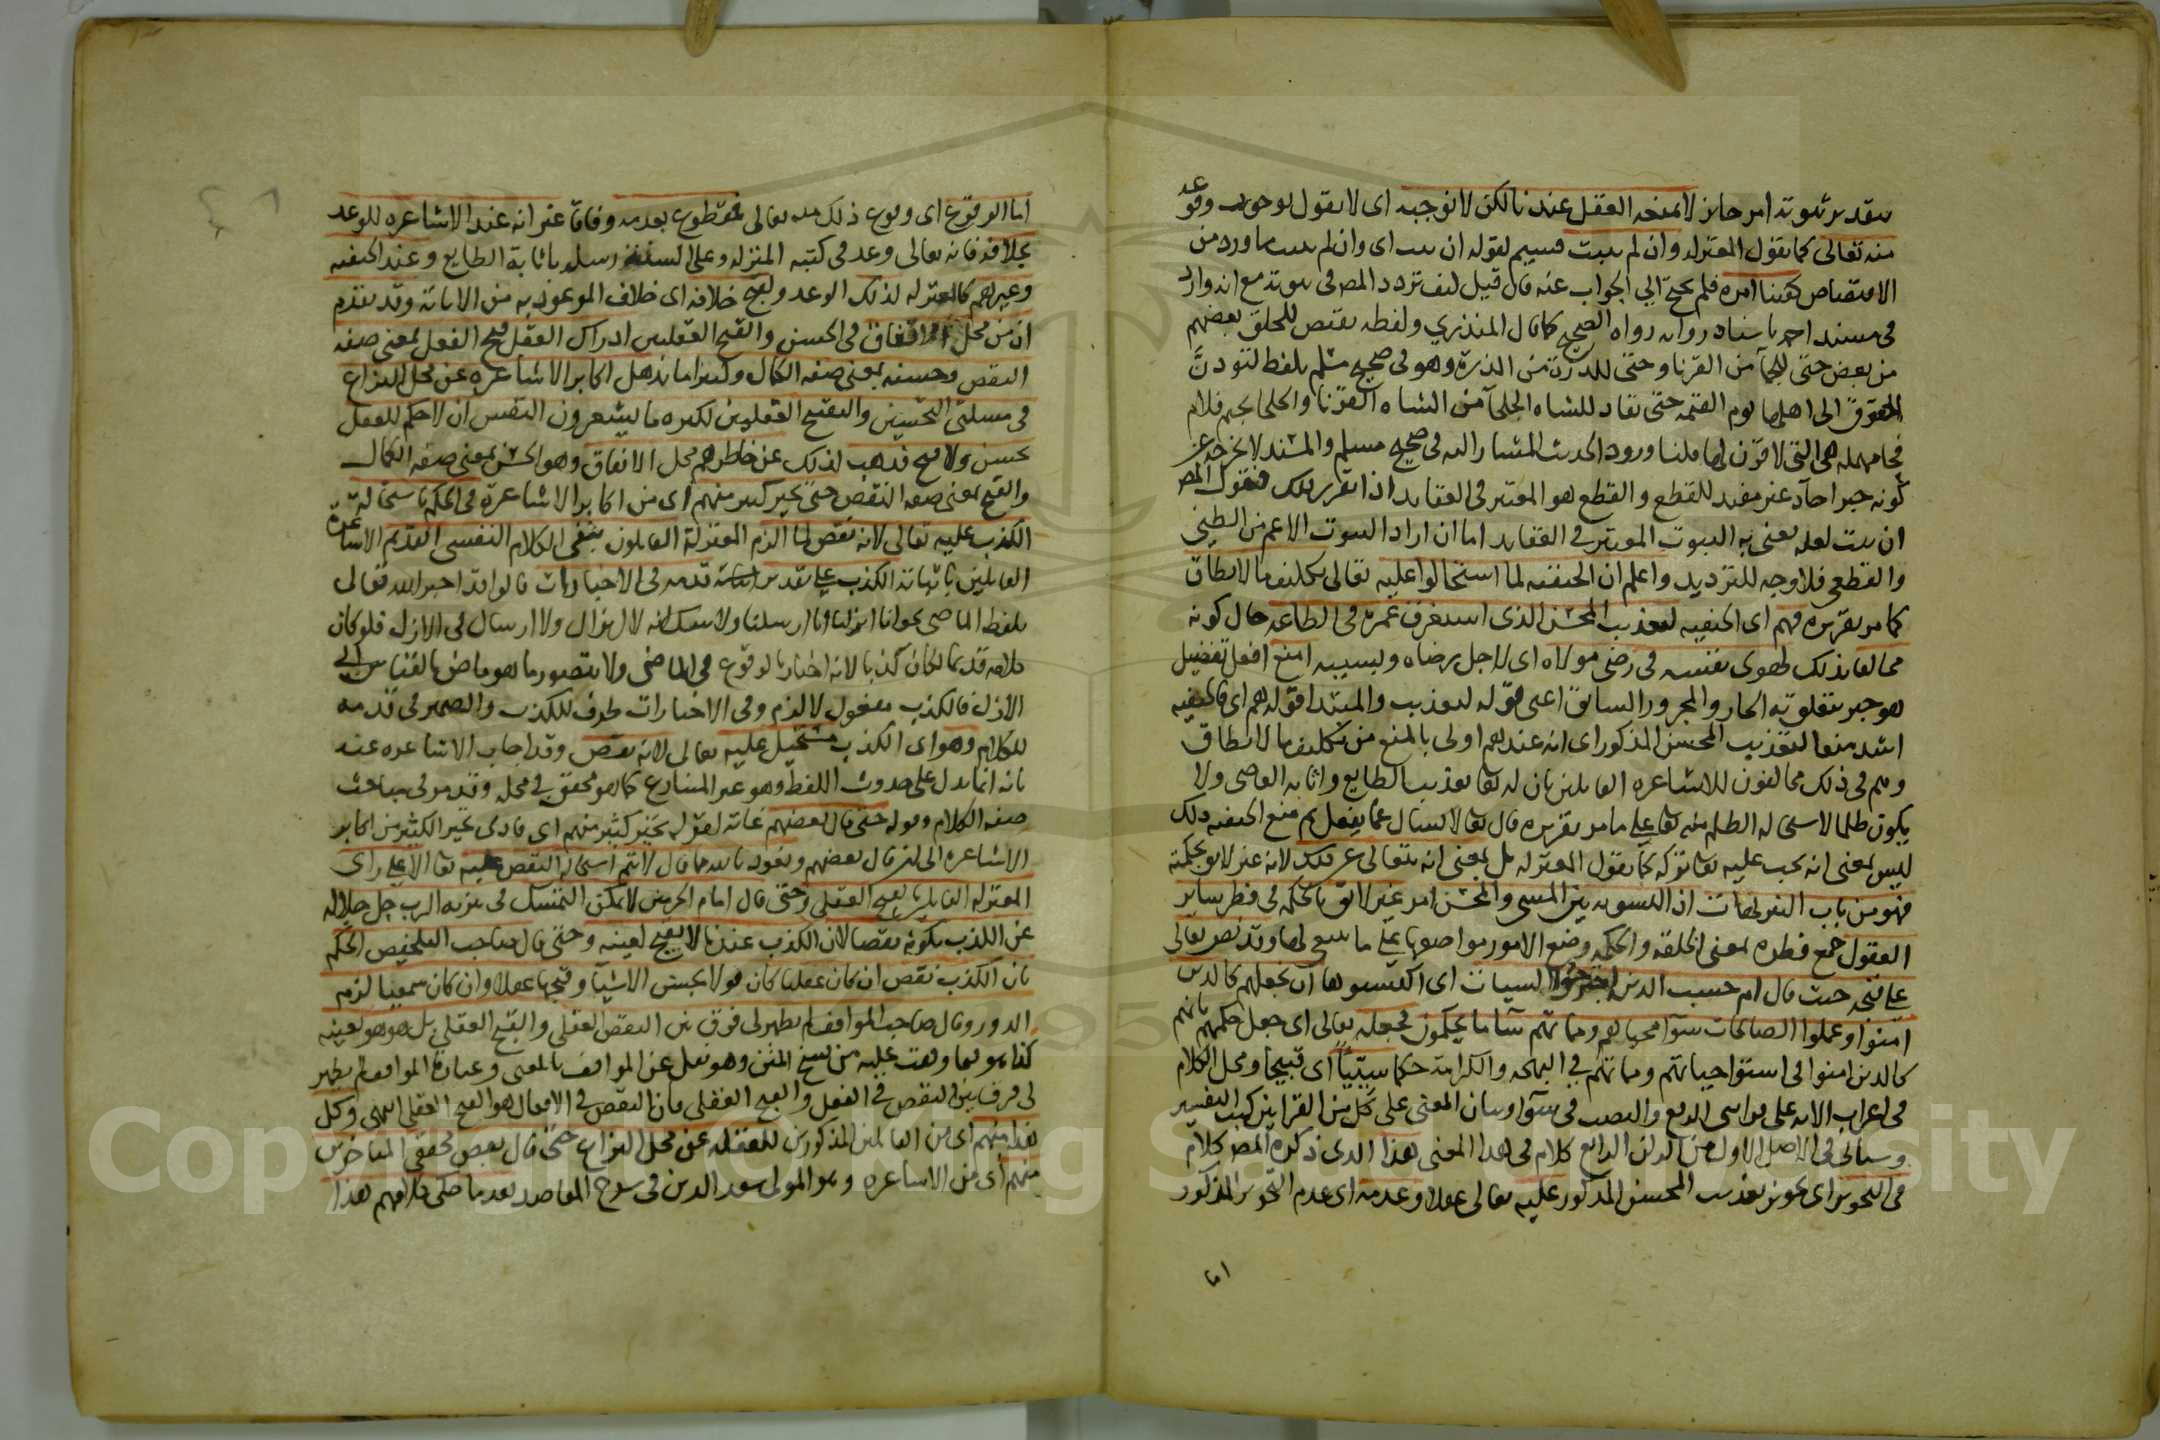 بتقدير ثبوته امر جائز لا يمنعه العقل عندنا لكن لا نوجبه اى لا نقول بوجوب وقوعه
منه تعالى كما تقول المعتزلة وان لم يثبت قسيم لقوله ان ثبت اى وان لم يثبت ما ورد من
الاقتصاص كفينا امره فلم نحتج الى الجواب عنه فان قيل كيف تردد المص فى ثبوته مع انه وارد
فى مسند احمد باسناد رواته رواة الصحيح كما قال المنذري ولفظه يقتص للخلق بعضهم
من بعض حتى للجمآ من القرنا وحتى للذرة من الذرة وهو فى صحيح مسلم بلفظ لتؤدنّ
الحقوق الى اهلها يوم القيمة حتى يقاد للشاه الجلحآ من الشاه القرنا والجلحا بجيم فلام
فحا مهمله هى التى لا قرن لها قلنا ورود الحديث المشار اليه فى صحيح مسلم والمسند لا يخرجه عن
كونه خبر احاد غير مفيد للقطع والقطع هو المعتبر فى العقايد اذا تقرر ذلك فنقول المص
ان ثبت لعله يعنى به الثبوت المعتبر في العقايد اما ان اراد الثبوت الاعم من الظني
والقطعى فلا وجه للترديد واعلم ان الحنفيه لما استحالوا عليه تعالى تكليف ما لا يطاق
كما مر تقريره فهم اى الحنفيه لتعذيب المحسن الذى استغرق عمره فى الطاعه حال كونه
مخالفا بذلك لهوى نفسه فى رضى مولاه اى لاجل رضاه وبسببه امنع افعل تفضيل
هو خبر يتعلق به الجار والمجرور السابق اعنى قوله لتعذيب والمبتدا قوله هم اى فالحنفيه
اشد منعا لتعذيب المحسن المذكور اى انه عندهم اولى بالمنع من تكليف ما لا يطاق
وهم فى ذلك مخالفون للاشاعره القايلين بان له تعا تعذيب الطايع واثابه العاصى ولا
يكون ظلما لاستحالة الظلم منه تعا على ما مر تقريره قال تعا لا يسأل عما يفعل ثم منع الحنفيه ذلك
ليس بمعنى انه يجب عليه تعا تركه كما تقول المعتزله بل بمعنى انه يتعالى عن ذلك لانه غير لائق بحكمته
فهو من باب التنزيهات اذ التسويه بين المسى والمحسن امر غير لائق بالحكمه فى فطر ساير
العقول جمع فطره بمعنى الخلقه والحكمه وضع الامور مواضعها على ما ينبغى لها وقد نص تعالى
على قبحه حيث قال ام حسب الذين اجترحوا السيات اى اكتسبوها ان نجعلهم كالذين
امنوا وعملوا الصالحات سوآ محياهم ومماتهم سآ ما يحكمون فجعله تعالى اى جعل حكمهم بانهم
كالذين امنوا فى استوا حياتهم ومماتهم في البهجه والكرامة حكما سيّئا اى قبيحا ومحل الكلام
فى اعراب الايه على قراتى الرفع والنصب فى سوآ وبيان المعنى على كل من القراتين كتب التفسير
وسياتى فى الاصل الاول من الركن الرابع كلام فى هذا المعنى هذا الذى ذكره المص كلام
فى التجويز اى تجويز تعذيب المحسن المذكور عليه تعالى عقلا وعدمه اى عدم التجويز المذكور
اما
اما الوقوع اى وقوع ذلك منه تعالى فمقطوع بعدمه وفاقا غير انه عند الاشاعره للوعد
بخلافه فانه تعالى وعد فى كتبه المنزله وعلى السنة رسله باثابة الطايع وعند الحنفيه
وغيرهم كالمعتزله لذلك الوعد ولقبح خلافه اى خلاف الموعود به من الاثابة وقد تقدم
ان من محل الاتفاق فى الحسن والقبح العقليين ادراك العقل قبح الفعل بمعنى صفه
النقص وحسنه بمعنى صفه الكمال وكثيرا ما يذهل اكابر الاشاعره عن محل النزاع
فى مسئلتى التحسين والتقبيح العقليين لكثره ما يشعرون النفس ان لا حكم للعقل
بحسن ولا قبح فذهب لذلك عن خاطرهم محل الاتفاق وهو الحسن بمعنى صفه الكمال
والقبح بمعنى صفه النقص حتى تحير كثير منهم اى من اكابر الاشاعرة فى الحكم باستحالة
الكذب عليه تعالى لانه نقص لما الزم المعتزلة القايلون بنفى الكلام النفسى القديم الاشاعرة
القايلين باثباته الكذب على تقدير قدمه فى الاخبارات قالوا قد اخبر الله تعالى
بلفظ الماضى نحو انا انزلنا وانا ارسلنا ولا شك انه لا انزال ولا ارسال فى الازل فلو كان
كلامه قديما لكان كذبا لانه اخبار بالوقوع فى الماضى ولا يتصور ما هو ماض بالقياس الى
الازل فالكذب مفعول لالزم وفى الاخبارات ظرف للكذب والضمير فى قدمه
للكلام وهو اى الكذب مستحيل عليه تعالى لانه نقص وقد اجاب الاشاعره عنه
بانه انما يدل على حدوث اللفظ وهو غير المتنازع كما هو محقق في محله وقد مر فى مباحث
صفه الكلام وقوله حتى قال بعضهم غاية لقوله تحير كثير منهم اى فادى تحير الكثير من اكابر
الاشاعره الى ان قال بعضهم ونعوذ بالله مما قال لا تتم استحالة النقص عليه تعا الا على راى
المعتزله القايلين بالقبح العقلى وحتى قال امام الحرمين لا يمكن التمسك فى تنزيه الرب جل جلاله
عن الكذب بكونه نقصا لان الكذب عندنا لا يقبح لعينه وحتى قال صاحب التلخيص الحكم
بان الكذب نقص ان كان عقليا كان قولا بحسن الاشيآ وقبحها عقلا وان كان سمعيا لزم
الدور وقال صاحب المواقف لم يظهر لى فرق بين النقص العقلى والقبح العقلي بل هو هو بعينه
كذا هو فيما وقفت عليه من نسخ المتن وهو نقل عن المواقف بالمعنى وعبارة المواقف لم يظهر
لى فرق بين النقص فى الفعل والقبح العقلى فان النقص فى الافعال هو القبح العقلى انتهى وكل
هذا منهم اى من القايلين المذكورين للغفله عن محل النزاع حتى قال بعض محققى المتاخرين
منهم اى من الاشاعره وهو المولى سعد الدين فى شرح المقاصد بعد ما حكى كلامهم هذا